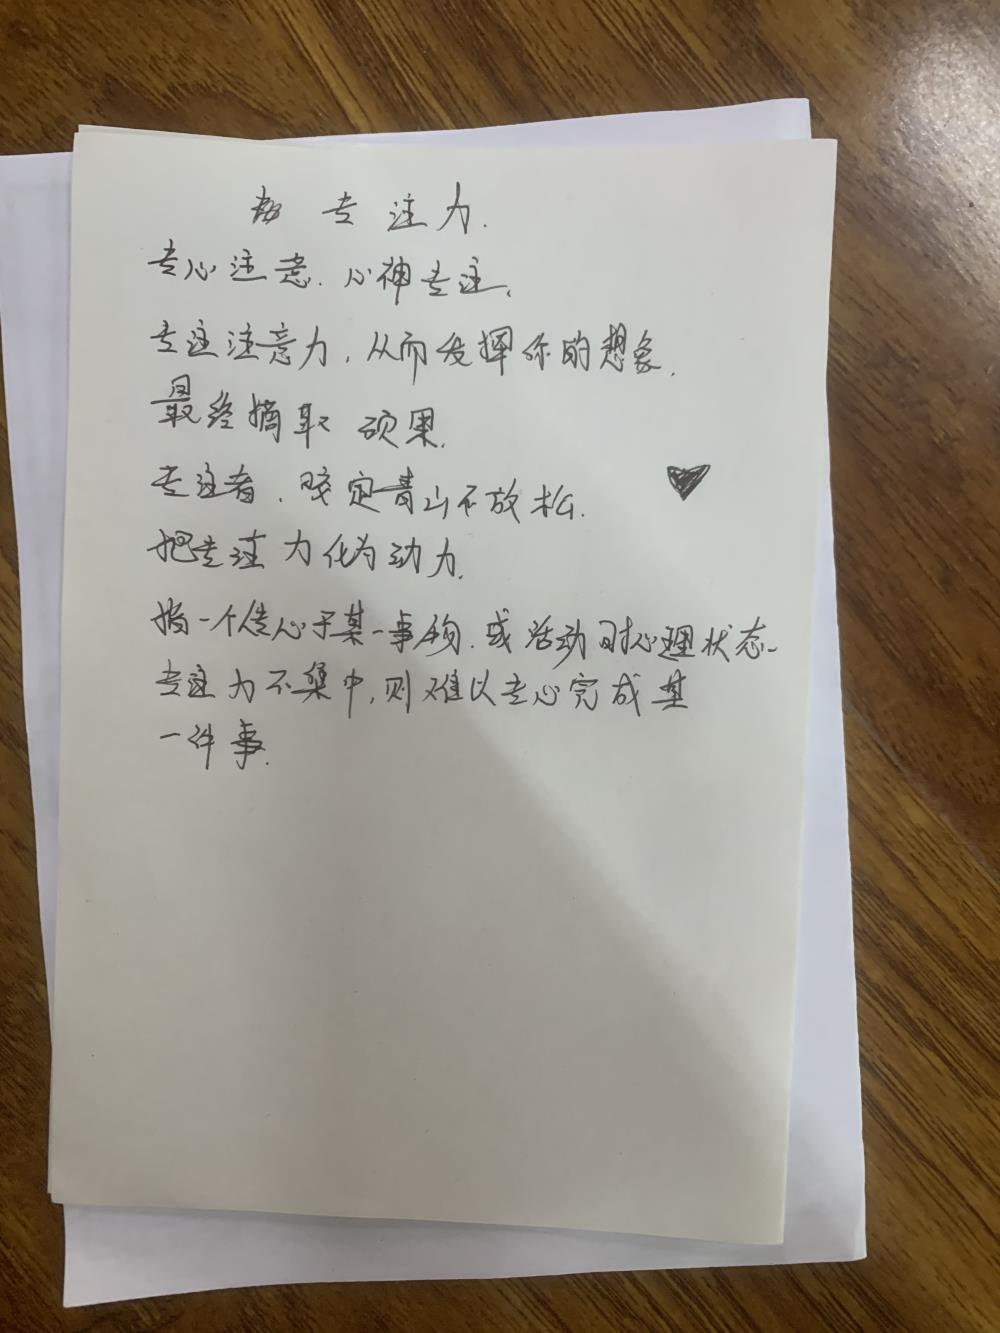 专注力.
专心注意.心神专注。
专注注意力,从而发挥你的想象.
最终摘取 硕果.
专注者.咬定青山不放松.
把专注力化为动力.
指一个人专心于某一事物.或活动时心理状态.
专注力不集中,则难以专心完成某
一件事.